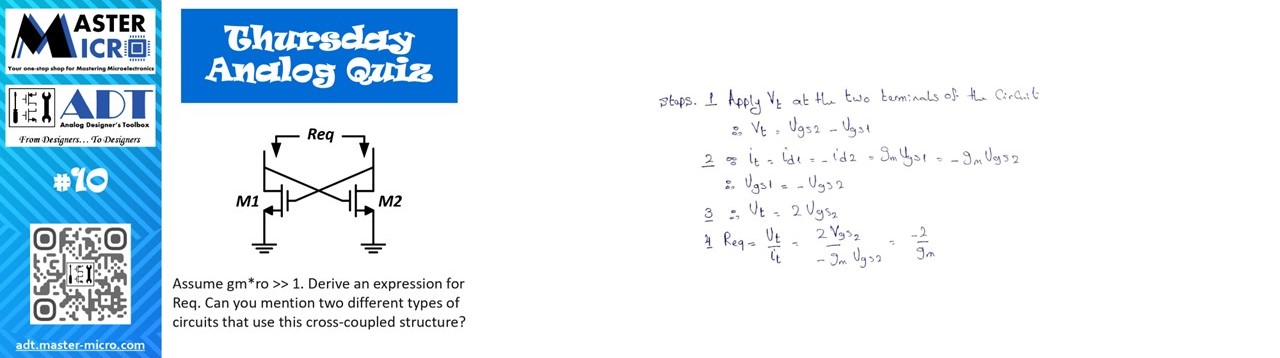 MASTER
MICRO
Your one-stop shop for Mastering Microelectronics
ADT
Analog Designer's Toolbox
From Designers... To Designers
#10
adt.master-micro.com
Thursday
Analog Quiz
Req
M1
M2
Assume gm*ro >> 1. Derive an expression for
Req. Can you mention two different types of
circuits that use this cross-coupled structure?
steps. 1 Apply Vt at the two terminals of the Circuit
∴ Vt = Vgs2 - Vgs1
2 ∵ it = id1 = -id2 = gm Vgs1 = - gm Vgs2
∴ Vgs1 = - Vgs2
3 ∴ Vt = 2 Vgs2
4 Req = Vt/it = 2 Vgs2/- gm Vgs2 = -2/gm